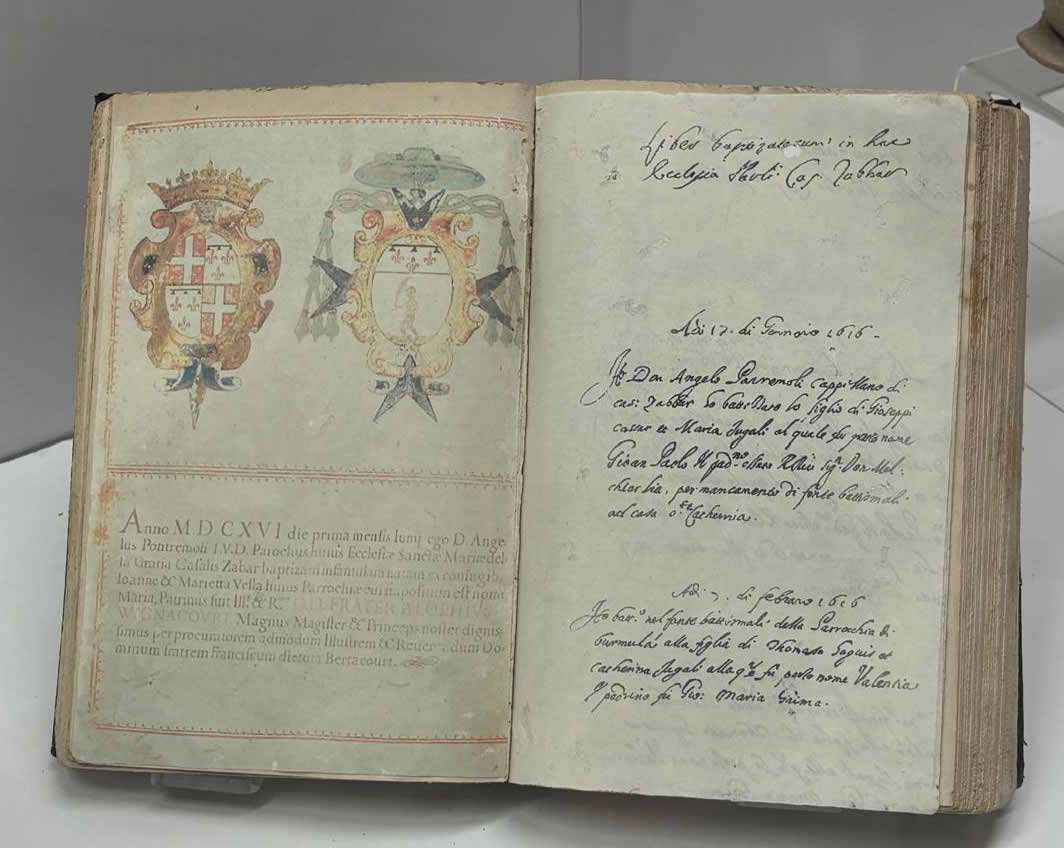 Anno M.D.CXVI die prima mensis Iunij ego D. Ange
lus Pontremoli I.V.D. Parochus huius Ecclesiæ Sanctæ Mariæ del
la Gratia Casalis Zabar baptizaui infantulam natam ex coniugib.
Ioanne & Marietta Vella huius Parrochiæ cui impositum est nomē
Maria, Patrinus fuit Ill. & R. D.D. FRATER ALOPHIVS
WIGNACOVRT Magnus Magister & Princeps noster dignis
simus per procuratorem admodum Illustrem & Reuerendum Do-
minum fratrem Franciscum dictum Bertacourt.
Liber baptizatorum in hac
Ecclesia Cas. Zabbar
Adi 17. di Gennaro 1616 -
Io Don Angelo Pontremoli Cappillano di
casi Zabbar ho battizzato lo figlio di Gioseppi
et Maria Jugali al quale fu posto nome
Gioan Paolo Il pad.no Sig.r Don Mel-
chior per mancamento di fonte battismali
ad casa Catherina.
Adi 7. di febraro 1616
Ho batt.o nel fonte battismali della Parrochia di
burmula alla figlia di Thomaso et
Catherina Jugali alla q.le fu posto nome Valencia
Il padrino fu Gio: Maria Grima.